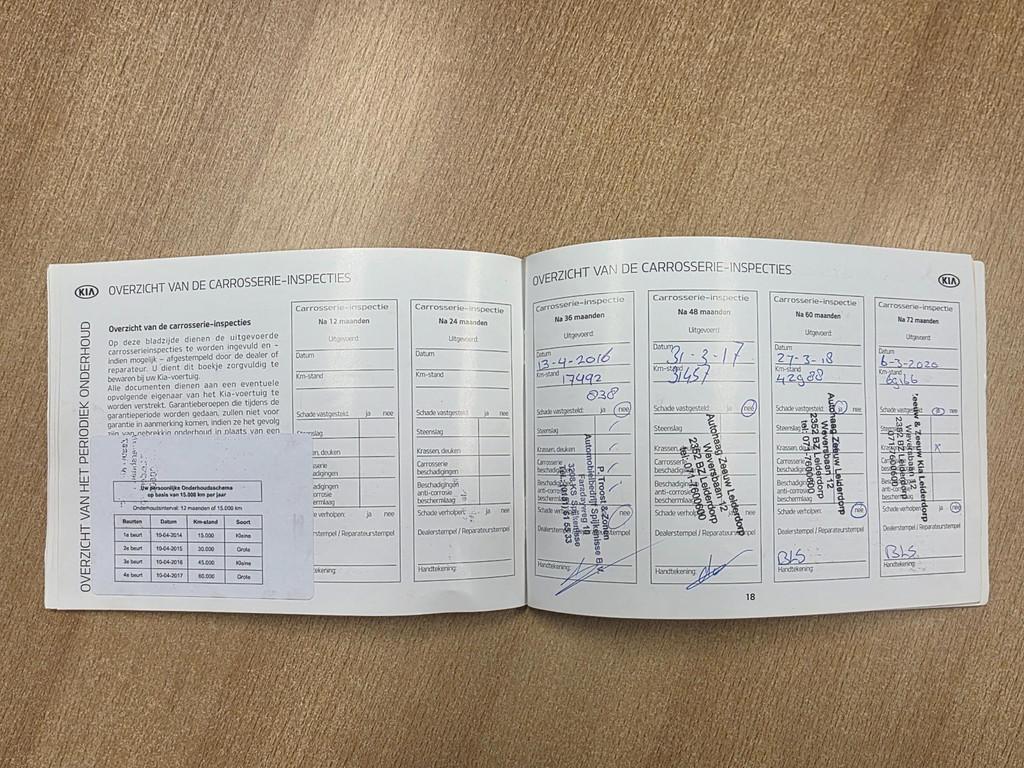 KIA
OVERZICHT VAN DE CARROSSERIE-INSPECTIES
OVERZICHT VAN HET PERIODIEK ONDERHOUD
Overzicht van de carrosserie-inspecties
Op deze bladzijde dienen de uitgevoerde
carrosserieinspecties te worden ingevuld en -
indien mogelijk - afgestempeld door de dealer of
reparateur. U dient dit boekje zorgvuldig te
bewaren bij uw Kia-voertuig.
Alle documenten dienen aan een eventuele
opvolgende eigenaar van het Kia-voertuig te
worden verstrekt. Garantieberoepen die tijdens de
garantieperiode worden gedaan, zullen niet voor
garantie in aanmerking komen, indien ze het gevolg
zijn van gebrekkig onderhoud in plaats van een
Uw persoonlijke Onderhoudsschema
op basis van 15.000 km per jaar
Onderhoudsinterval: 12 maanden of 15.000 km
Beurten Datum Km-stand Soort
1e beurt 10-04-2014 15.000 Kleine
2e beurt 10-04-2015 30.000 Grote
3e beurt 10-04-2016 45.000 Kleine
4e beurt 10-04-2017 60.000 Grote
Carrosserie-inspectie
Na 12 maanden
Uitgevoerd:
Datum
Km-stand
Schade vastgesteld: ja nee
Steenslag
Krassen, deuken
beschadigingen
ja nee
Dealerstempel / Reparateurstempel
Handtekening:
Carrosserie-inspectie
Na 24 maanden
Uitgevoerd:
Datum
Km-stand
Schade vastgesteld: ja nee
Steenslag
Krassen, deuken
Carrosserie
beschadigingen
Beschadigingen
anti-corrosie
beschermlaag
Schade verholpen: ja nee
Dealerstempel / Reparateurstempel
Handtekening:
OVERZICHT VAN DE CARROSSERIE-INSPECTIES
KIA
Carrosserie-inspectie
Na 36 maanden
Uitgevoerd:
Datum
13-4-2016
Km-stand
17492
038
Schade vastgesteld: ja nee
Steenslag
Krassen, deuken
Carrosserie
beschadigingen
Beschadigingen
anti-corrosie
beschermlaag
Schade verholpen: ja nee
Dealerstempel / Reparateurstempel
P. Troost & Zonen
Automobielbedrijf Spijkenisse B.V.
Faradayweg
Handtekening:
Carrosserie-inspectie
Na 48 maanden
Uitgevoerd:
Datum
31-3-17
Km-stand
31457
Schade vastgesteld: ja nee
Steenslag
Krassen, deuken
Carrosserie
beschadigingen
Beschadigingen
anti-corrosie
beschermlaag
Schade verholpen:
Dealerstempel / Reparateurstempel
Autohaag Zeeuw Leiderdorp
Weversbaan 12
2352 BZ Leiderdorp
tel: 071-7600600
Handtekening:
Carrosserie-inspectie
Na 60 maanden
Uitgevoerd:
Datum
27-3-18
Km-stand
42988
Schade vastgesteld: ja nee
Steenslag
Krassen, deuken
Carrosserie
beschadigingen
Beschadigingen
anti-corrosie
beschermlaag
Schade verholpen: nee
Dealerstempel / Reparateurstempel
Autohaag Zeeuw Leiderdorp
Weversbaan 12
2352 BZ Leiderdorp
tel: 071-7600600
BLS
Handtekening:
Carrosserie-inspectie
Na 72 maanden
Uitgevoerd:
Datum
6-3-2020
Km-stand
Schade vastgesteld: ja nee
Steenslag
Krassen, deuken
x
Carrosserie
beschadigingen
Beschadigingen
anti-corrosie
beschermlaag
Schade verholpen: ja nee
Dealerstempel / Reparateurstempel
Zeeuw & Zeeuw Kia Leiderdorp
Weversbaan 12
2352 BZ Leiderdorp
BLS
Handtekening:
18